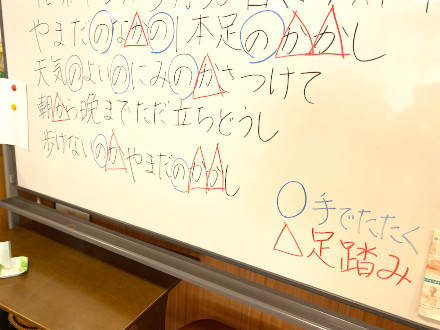 やまだのなかの一本足のかかし
天気のよいのにみのかさつけて
朝から晩までただ立ちどうし
歩けないのかやまだのかかし
○手でたたく
△足踏み